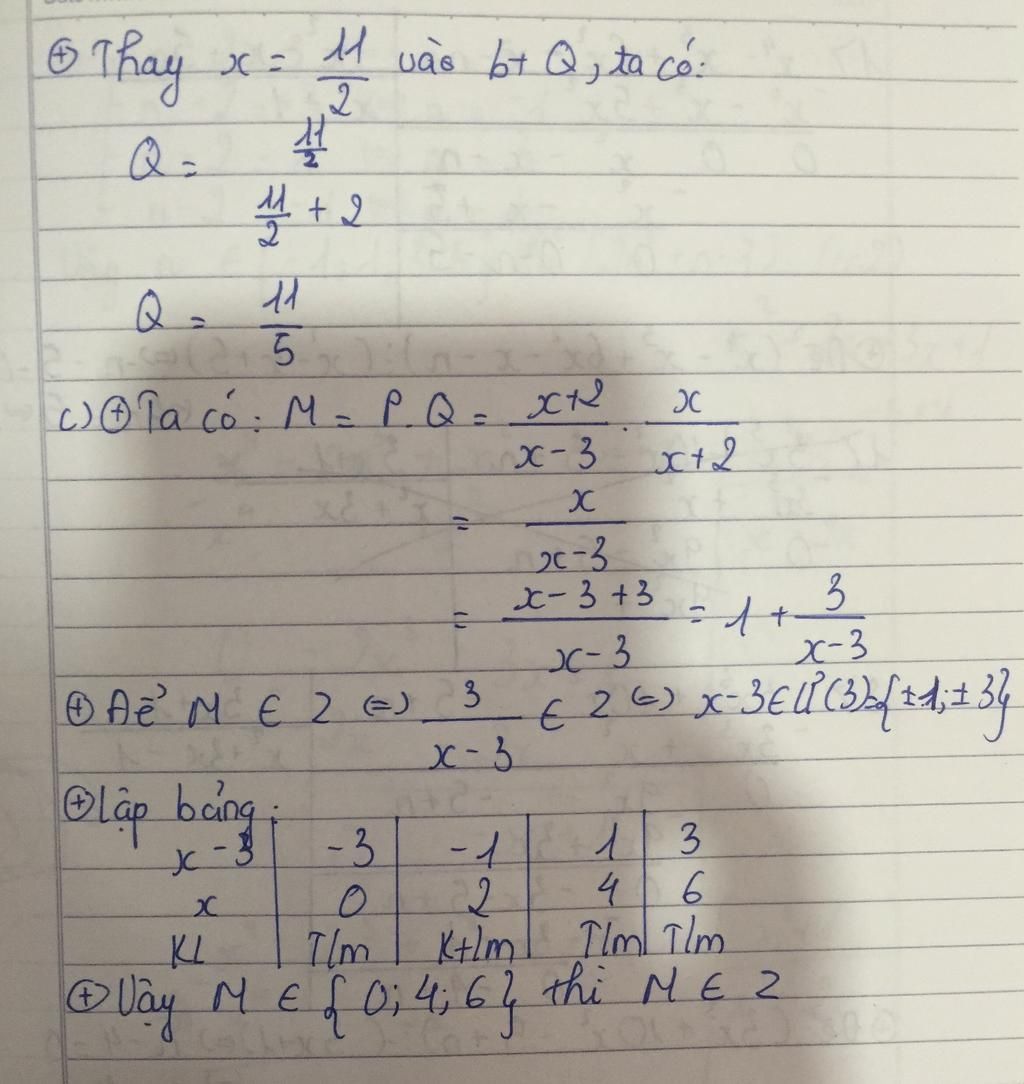 ⊕ Thay x = 11/2 vào bt Q, ta có:
Q = (11/2)/(11/2 + 2)
Q = 11/5
c) ⊕ Ta có: M = P.Q = (x+2)/(x-3) . x/(x+2)
= x/(x-3)
= (x-3+3)/(x-3) = 1 + 3/(x-3)
⊕ Để M ∈ Z (=) 3/(x-3) ∈ Z (=) x-3 ∈ Ư(3)={±1;±3}
⊕ Lập bảng:
x-3 | -3 | -1 | 1 | 3
x | 0 | 2 | 4 | 6
KL | T/m | K+/m | T/m | T/m
⊕ Vậy M ∈ {0; 4; 6} thì M ∈ Z